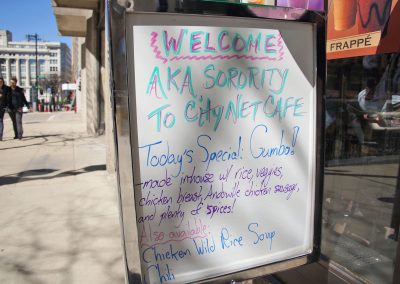 WELCOME
AKA SORORITY
TO CITY NET CAFE
Today's Special: Gumbo!!
-made inhouse w/ rice, veggies,
chicken breast, Andouille chicken sausage,
and plenty of spices!
Also available:
Chicken Wild Rice Soup
Chili
FRAPPÉ